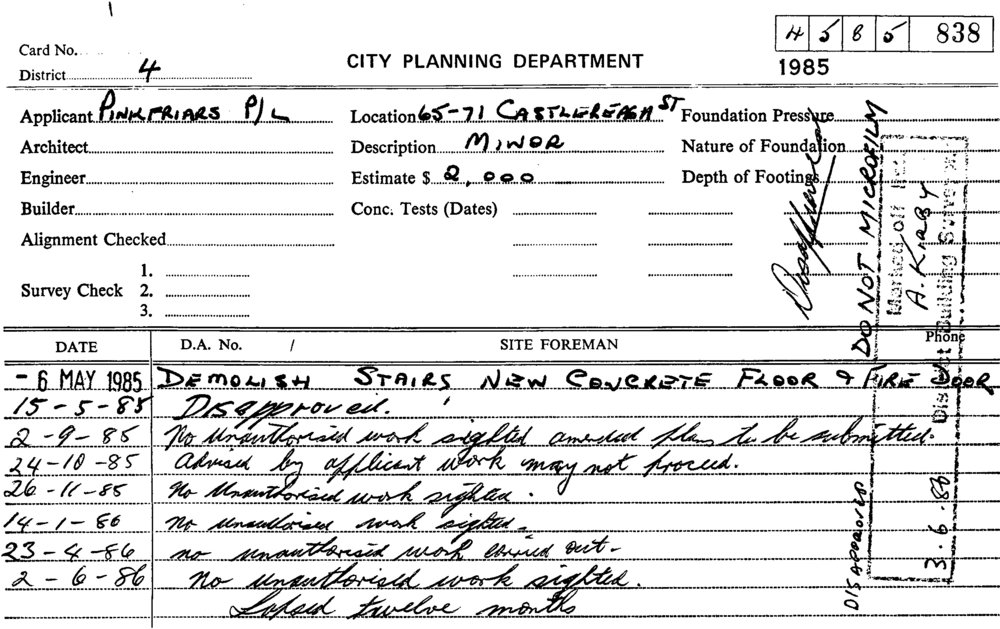 4 5 8 5 838
Card No.
CITY PLANNING DEPARTMENT
District 4
1985
Applicant PINKFRIARS P/L Location 65-71 CASTLEREAGH ST Foundation Pressure
Architect Description MINOR Nature of Foundation
Engineer Estimate $ 2,000 Depth of Footings
Builder Conc. Tests (Dates)
Alignment Checked
1.
Survey Check 2.
3.
Disapproved
DO NOT MICROFILM
Marked off
A. KIRBY
District Building Surveyor
3.6.86
DISAPPROVED
Phone
DATE D.A. No. / SITE FOREMAN
- 6 MAY 1985 DEMOLISH STAIRS NEW CONCRETE FLOOR & FIRE DOOR
15-5-85 Disapproved.
2-9-85 No Unauthorised work sighted amended plans to be submitted.
24-10-85 Advised by applicant work may not proceed.
26-11-85 No Unauthorised work sighted.
14-1-86 No unauthorised work sighted.
23-4-86 no unauthorised work carried out-
2-6-86 No unauthorised work sighted.
Lapsed twelve months